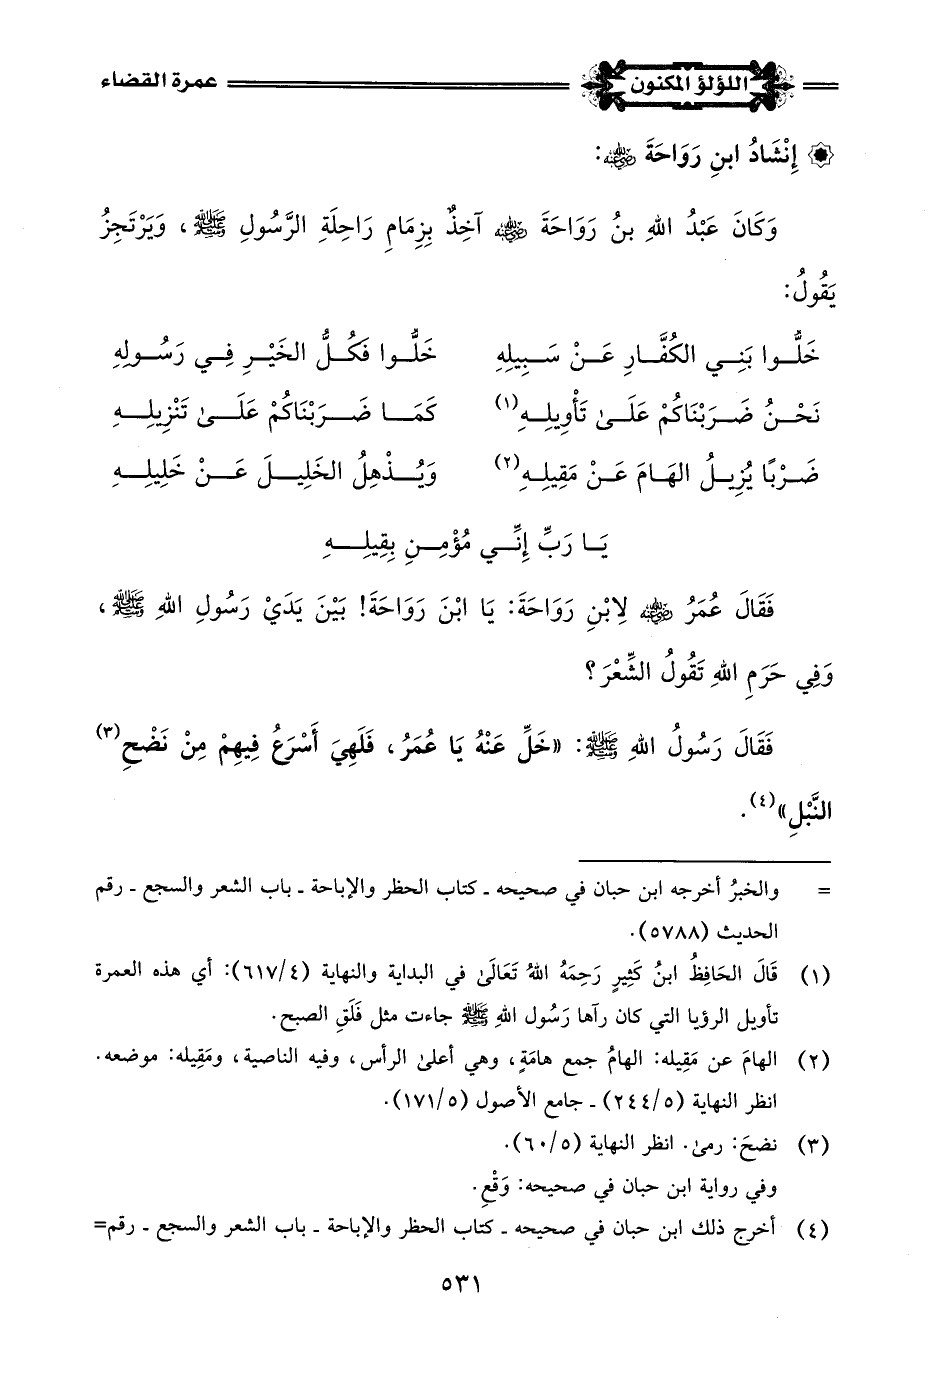 اللؤلؤ المكنون عمرة القضاء
إِنْشَادُ ابنِ رَوَاحَةَ رضي الله عنه:
وَكَانَ عَبْدُ اللهِ بنُ رَوَاحَةَ رضي الله عنه آخِذٌ بِزِمَامِ رَاحِلَةِ الرَّسُولِ ﷺ، وَيَرْتَجِزُ
يَقُولُ:
خَلُّوا بَنِي الكُفَّارِ عَنْ سَبِيلِهِ خَلُّوا فَكُلُّ الخَيْرِ فِي رَسُولِهِ
نَحْنُ ضَرَبْنَاكُمْ عَلَىٰ تَأْوِيلِهِ(١) كَمَا ضَرَبْنَاكُمْ عَلَىٰ تَنْزِيلِهِ
ضَرْبًا يُزِيلُ الهَامَ عَنْ مَقِيلِهِ(٢) وَيُذْهِلُ الخَلِيلَ عَنْ خَلِيلِهِ
يَا رَبِّ إِنِّي مُؤْمِنِ بِقِيلِهِ
فَقَالَ عُمَرُ رضي الله عنه لِابْنِ رَوَاحَةَ: يَا ابْنَ رَوَاحَةَ! بَيْنَ يَدَيْ رَسُولِ اللهِ ﷺ،
وَفِي حَرَمِ اللهِ تَقُولُ الشِّعْرَ؟
فَقَالَ رَسُولُ اللهِ ﷺ: «خَلِّ عَنْهُ يَا عُمَرُ، فَلَهِيَ أَسْرَعُ فِيهِمْ مِنْ نَضْحِ(٣)
النَّبْلِ»(٤).
= والخبرُ أخرجه ابن حبان في صحيحه ـ كتاب الحظر والإباحة ـ باب الشعر والسجع ـ رقم
الحديث (٥٧٨٨).
(١) قَالَ الحَافِظُ ابنُ كَثِيرٍ رَحِمَهُ اللهُ تَعَالَىٰ في البداية والنهاية (٤/٦١٧): أي هذه العمرة
تأويل الرؤيا التي كان رآها رَسُول اللهِ ﷺ جاءت مثل فَلَقِ الصبح.
(٢) الهامَ عن مَقِيله: الهامُ جمع هامَةٍ، وهي أعلىٰ الرأس، وفيه الناصية، ومَقِيله: موضعه.
انظر النهاية (٥/٢٤٤) ـ جامع الأصول (٥/١٧١).
(٣) نضحَ: رمىٰ. انظر النهاية (٥/٦٠).
وفي رواية ابن حبان في صحيحه: وَقْعِ.
(٤) أخرج ذلك ابن حبان في صحيحه ـ كتاب الحظر والإباحة ـ باب الشعر والسجع ـ رقم=
٥٣١